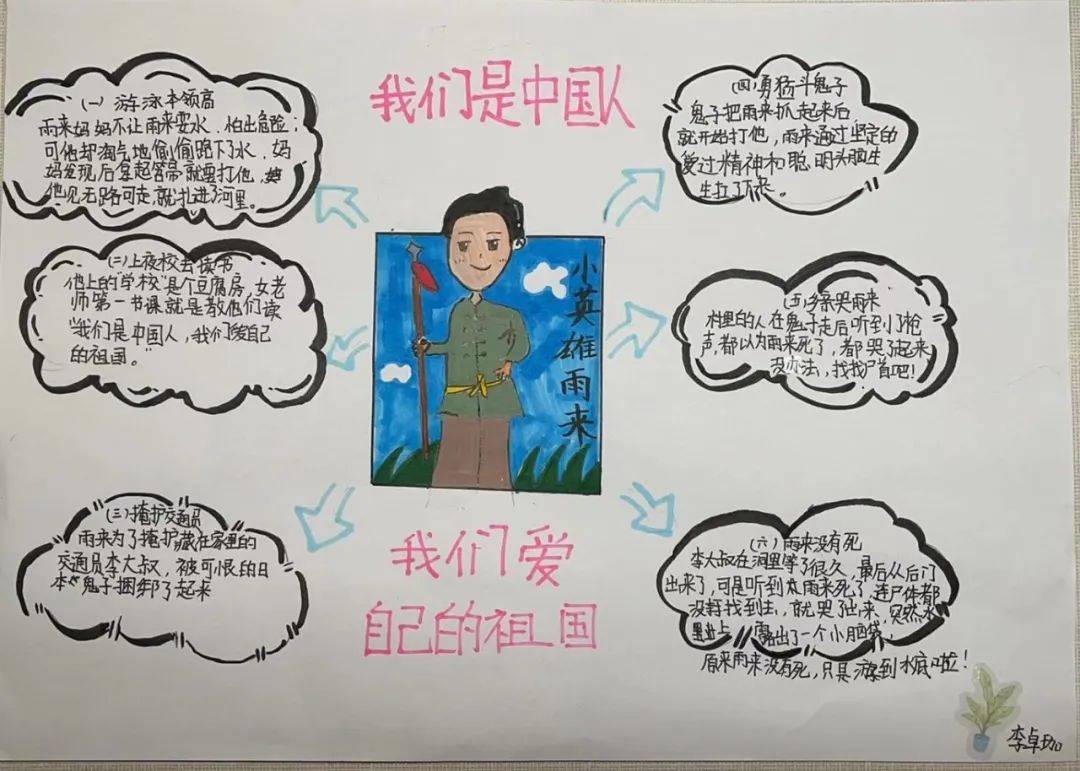 我们是中国人
(一) 游泳本领高
雨来妈妈不让雨来耍水，怕出危险，
可他却淘气地偷偷跑下了水，妈
妈发现后拿起笤帚就要打他，
他见无路可走，就扎进了河里。
(二)上夜校去读书
他上的"学校"是个豆腐房，女老
师第一书课就是教他们读
"我们是中国人，我们爱自己
的祖国。"
(三)掩护交通员
雨来为了掩护藏在家里的
交通员李大叔，被可恨的日
本"鬼子"捆绑了起来
小英雄雨来
(四)勇猛斗鬼子
鬼子把雨来抓起来后
就开始打他，雨来通过坚定的
爱过精神和聪明头脑生
生拉了下来。
(五)乡亲哭雨来
村里的人在鬼子走后听到了枪
声，都以为雨来死了，都哭了起来
没办法，找找尸首吧！
(六)雨来没有死
李大叔在洞里等了很久，最后从后门
出来了，可是听到雨来死了，连尸体都
没有找到，就哭了出来，突然水
里边上露出了一个小脑袋，
原来雨来没有死，只是游到水底啦！
我们爱
自己的祖国
李卓珈